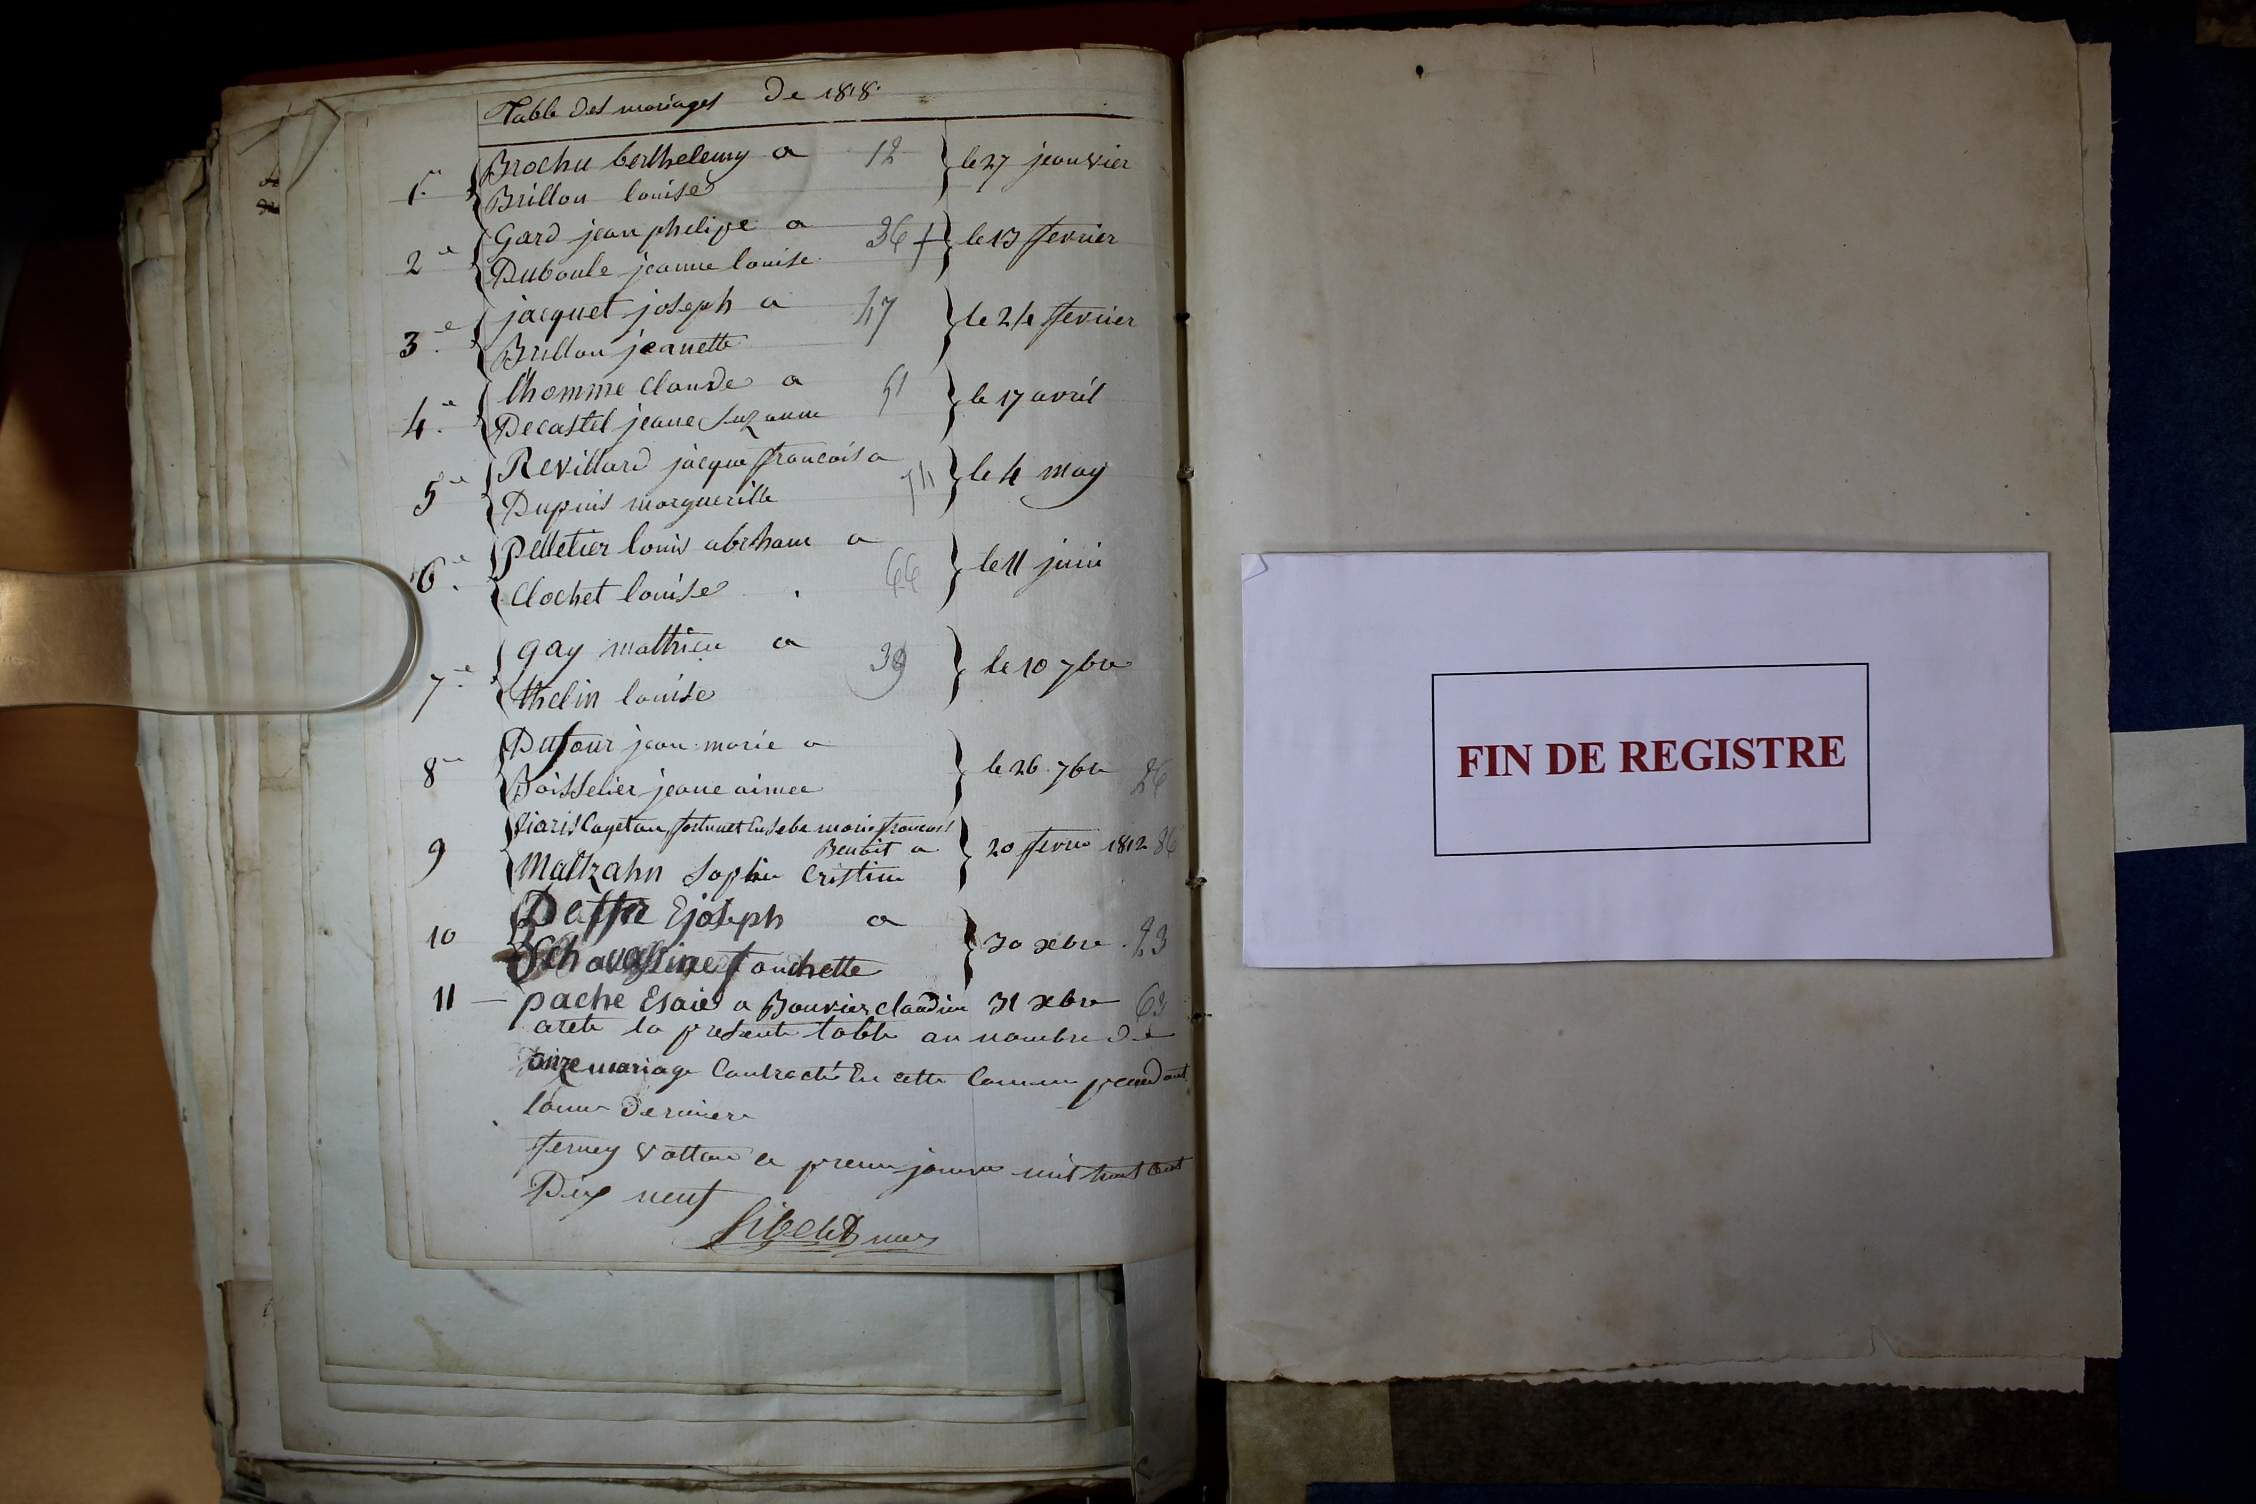 Table des mariages De 1818
1er Brochu berthelemy a 12 le 27 jeanvier
Brillon louise
2e Gard jean phelipe a 36 + le 13 fevrier
Duboule jeanne louise
3e jacquet joseph a 47 le 24 fevrier
Brillon jeanette
4e l'homme claude a 51 le 17 avril
Decastel jeane Suzanne
5e Revillard jacque francois a 74 le 4 may
Dupuis marguerille
6e pelletier louis abraham a 66 le 11 juin
Clochet louise
7e gay mathieu a 39 le 10 7bre
thelin louise
8e Dufour jean marie a le 26 7bre 26
Boisselier jeane aimee
9 Viaris Cayetan fortunet Eusebe marie francois
Benoit a 20 fevrie 1812 86
Maltzahn Sophie Cristine
10 joseph a 30 xbre 23
fanchette
11 — pache Esaie a Bouvier claudine 31 xbre 63
arete la presente table au nombre de
onze mariage Contracté En cette Commune pendant
lanne derniere
ferney Voltaire le premie janvier mil huit cent
Dix neuf
FIN DE REGISTRE